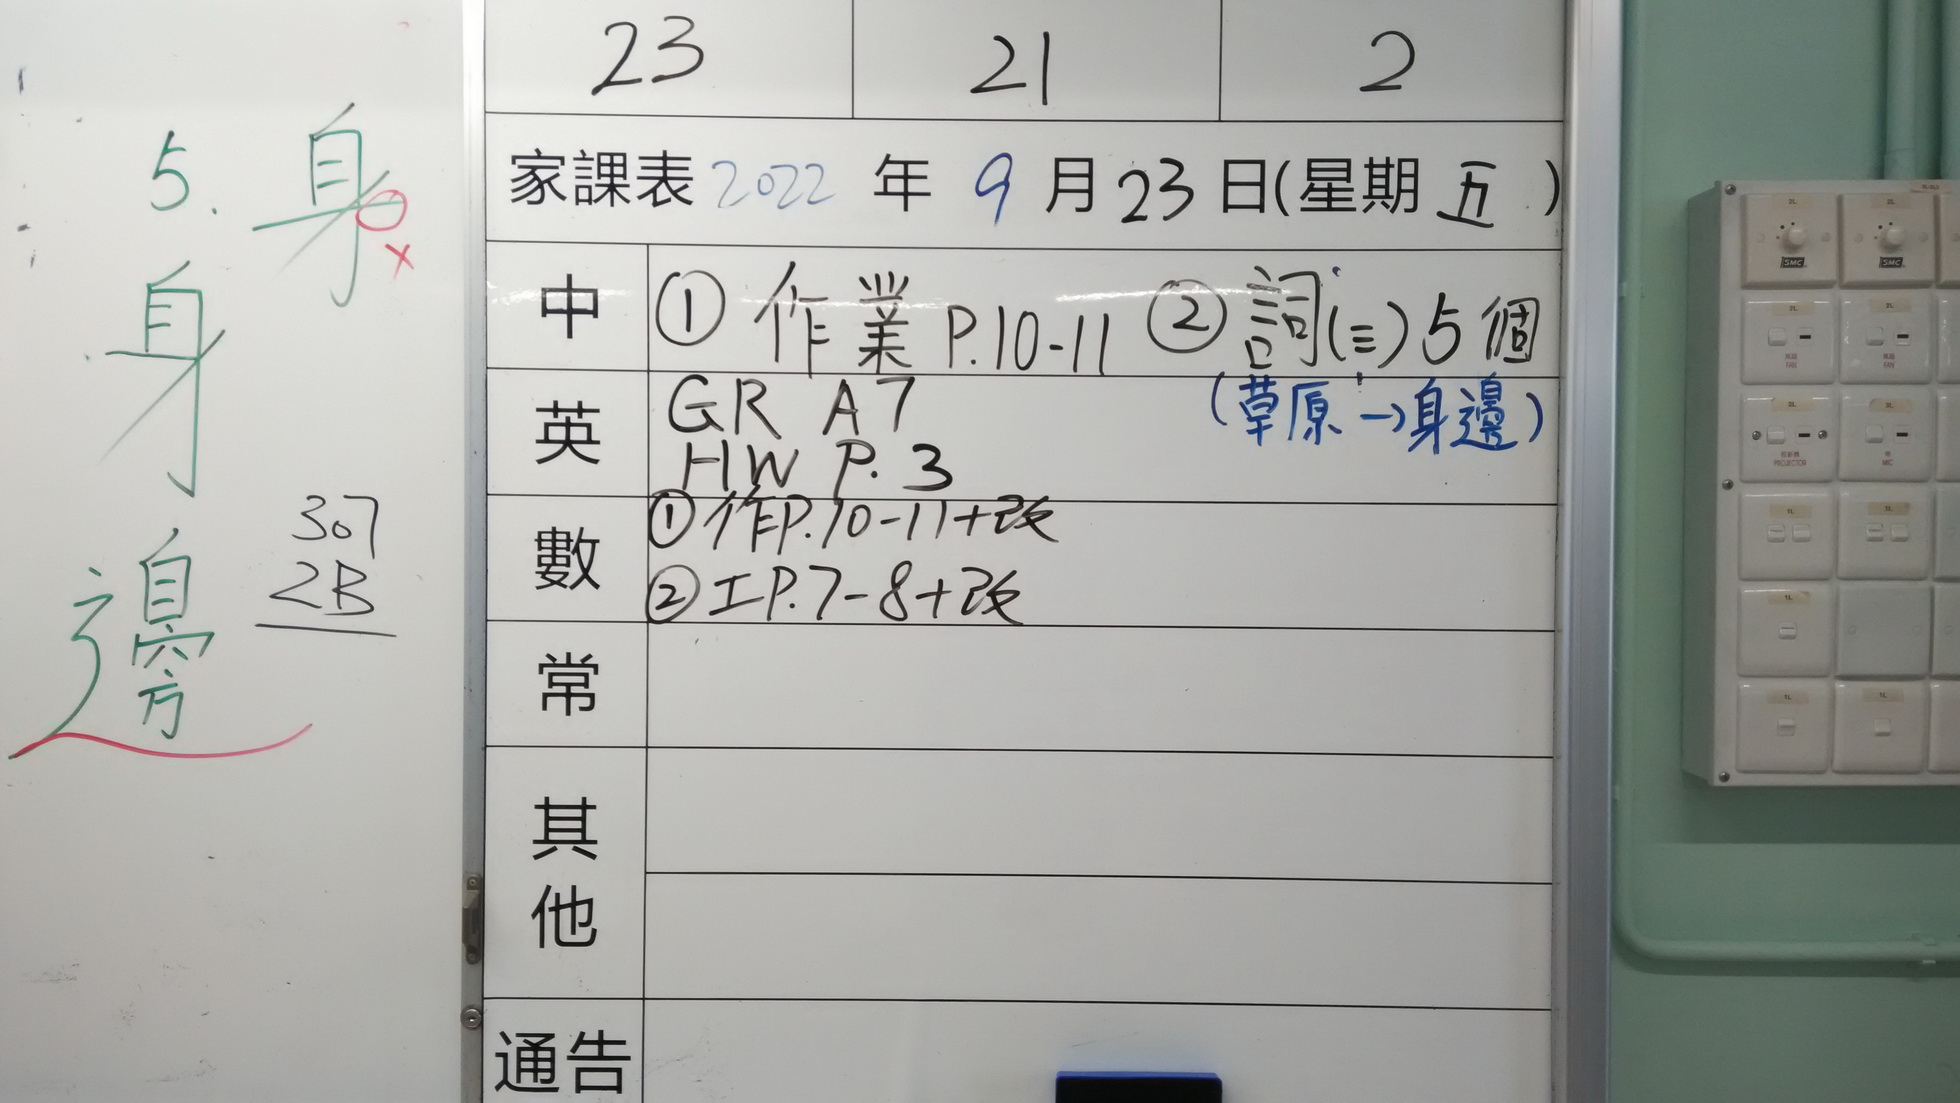 23 21 2
家課表 2022 年 9 月 23 日(星期 五 )
中 ① 作業 P.10-11 ② 詞(三) 5個
(草原→身邊)
英 GR A7
HW P. 3
數 ①作P.10-11+改
②工P.7-8+改
常
其他
通告
5. 身 x
身邊
307
2B
SMC
SMC
FAN
FAN
PROJECTOR
MIC